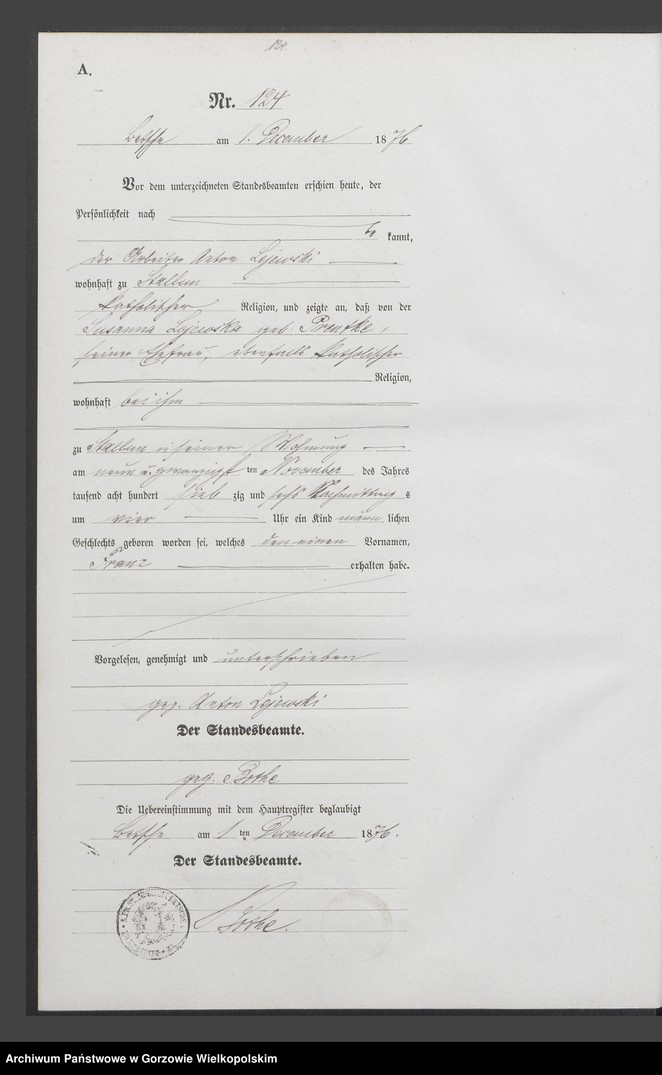 124.
A.
Nr. 124
Betsche am 1. December 1876
Vor dem unterzeichneten Standesbeamten erschien heute, der
Persönlichkeit nach
be kannt,
der Arbeiter Anton Lejewski
wohnhaft zu Stallun
katholischer Religion, und zeigte an, daß von der
Susanna Lejewska geb. Prentke,
seiner Ehefrau, ebenfalls katholischer
Religion,
wohnhaft bei ihm
zu Stallun in seiner Wohnung
am neun u. zwanzigst ten November des Jahres
tausend acht hundert sieb zig und sechs Nachmittag s
um vier Uhr ein Kind männ lichen
Geschlechts geboren worden sei, welches den einen Vornamen,
Franz erhalten habe.
Vorgelesen, genehmigt und unterschrieben
gez. Anton Lejewski
Der Standesbeamte.
gez. Bothe
Die Uebereinstimmung mit dem Hauptregister beglaubigt
Betsche am 1 ten December 1876.
Der Standesbeamte.
Bothe.
Archiwum Państwowe w Gorzowie Wielkopolskim